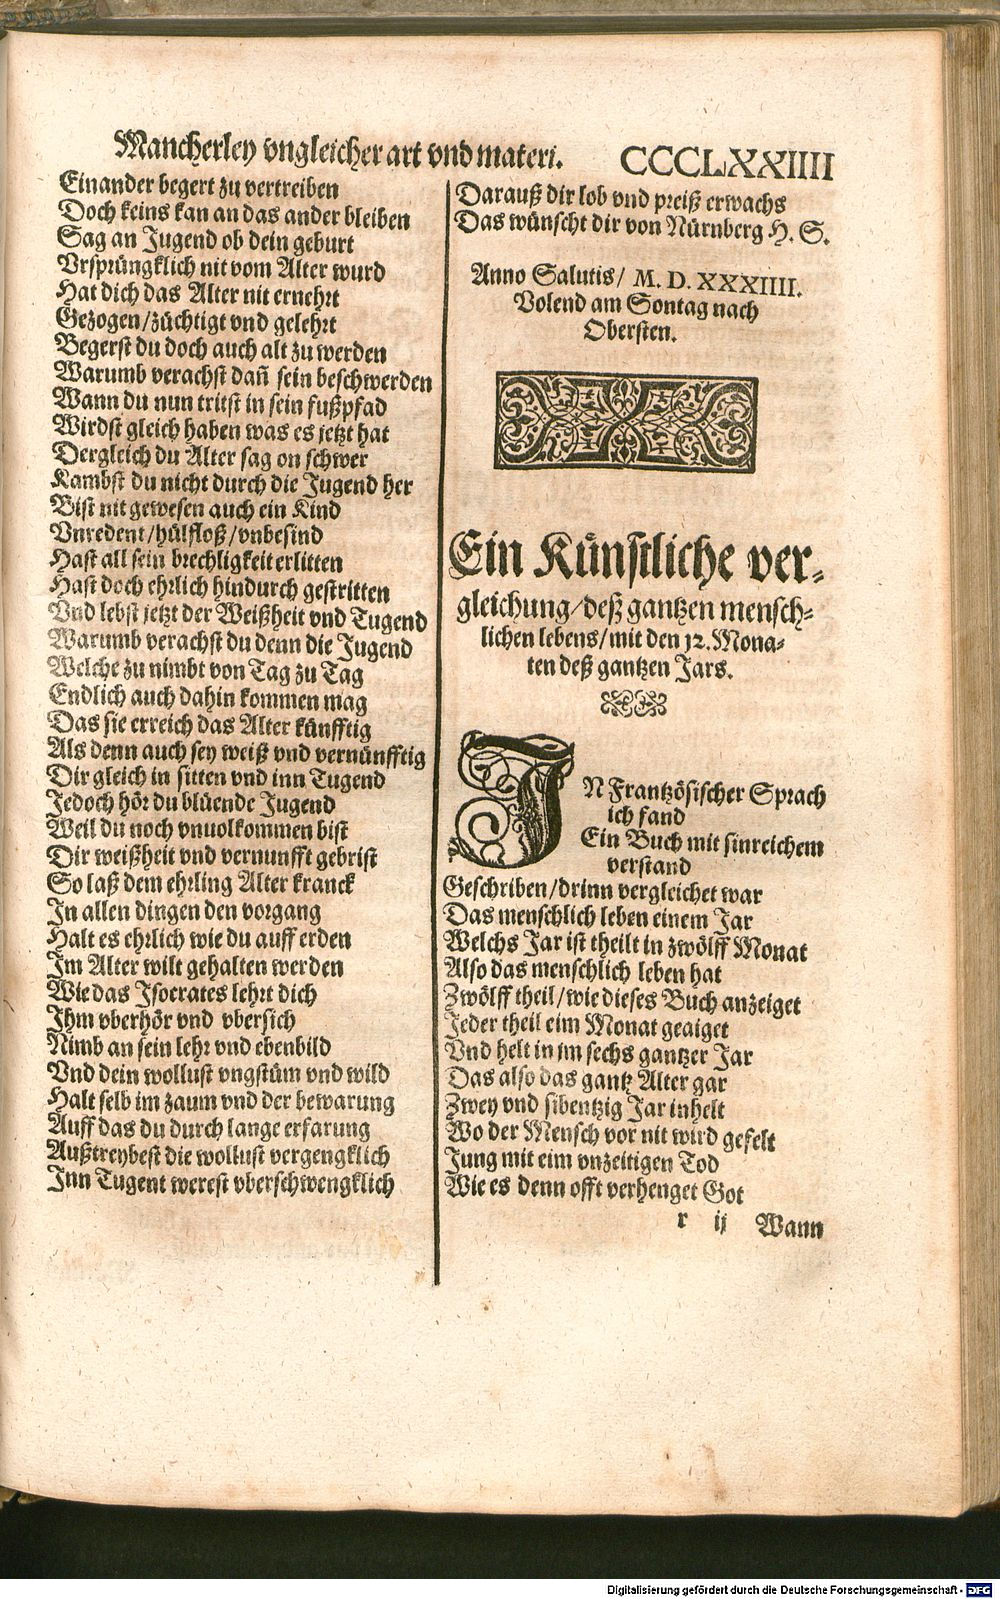 Mancherley vngleicher art vnd materi. CCCCLXXIIII
Einander begert zu vertreiben
Doch keins kan an das ander bleiben
Sag an Jugend ob dein geburt
Vrsprüngklich nit vom Alter wurd
Hat dich das Alter nit ernehrt
Gezogen/züchtigt vnd gelehrt
Begerst du doch auch alt zu werden
Warumb verachst dañ sein beschwerden
Wann du nun tritst in sein fußpfad
Wirdst gleich haben was es jetzt hat
Dergleich du Alter sag on schwer
Kambst du nicht durch die Jugend her
Bist nit gewesen auch ein Kind
Vnredent/hülfloß/vnbesind
Hast all sein brechligkeit erlitten
Hast doch ehrlich hindurch gestritten
Vnd lebst jetzt der Weißheit vnd Tugend
Warumb verachst du denn die Jugend
Welche zu nimbt von Tag zu Tag
Endlich auch dahin kommen mag
Das sie erreich das Alter künfftig
Als denn auch sey weiß vnd vernünfftig
Dir gleich in sitten vnd inn Tugend
Jedoch hör du blüende Jugend
Weil du noch vnuolkommen bist
Dir weißheit vnd vernunfft gebrist
So laß dem ehrling Alter kranck
In allen dingen den vorgang
Halt es ehrlich wie du auff erden
Im Alter wilt gehalten werden
Wie das Isocrates lehrt dich
Ihm vberhör vnd vbersich
Nimb an sein lehr vnd ebenbild
Vnd dein wollust vngstüm vnd wild
Halt selb im zaum vnd der bewarung
Auff das du durch lange erfarung
Außtreybest die wollust vergengklich
Inn Tugent werest vberschwengklich
Darauß dir lob vnd preiß erwachs
Das wünscht dir von Nürnberg H. S.
Anno Salutis/ M. D. XXXIIII.
Volend am Sontag nach
Obersten.
Ein Künstliche ver-
gleichung/deß gantzen mensch-
lichen lebens/mit den 12. Mona-
ten deß gantzen Jars.
IN Frantzösischer Sprach
ich fand
Ein Buch mit sinreichem
verstand
Geschriben/drinn vergleichet war
Das menschlich leben einem Jar
Welchs Jar ist theilt in zwölff Monat
Also das menschlich leben hat
Zwölff theil/wie dieses Buch anzeiget
Jeder theil eim Monat geaiget
Vnd helt in jm sechs gantzer Jar
Das also das gantz Alter gar
Zwey vnd sibentzig Jar inhelt
Wo der Mensch vor nit wird gefelt
Jung mit eim vnzeitigen Tod
Wie es denn offt verhenget Got
r ij Wann
Digitalisierung gefördert durch die Deutsche Forschungsgemeinschaft - DFG